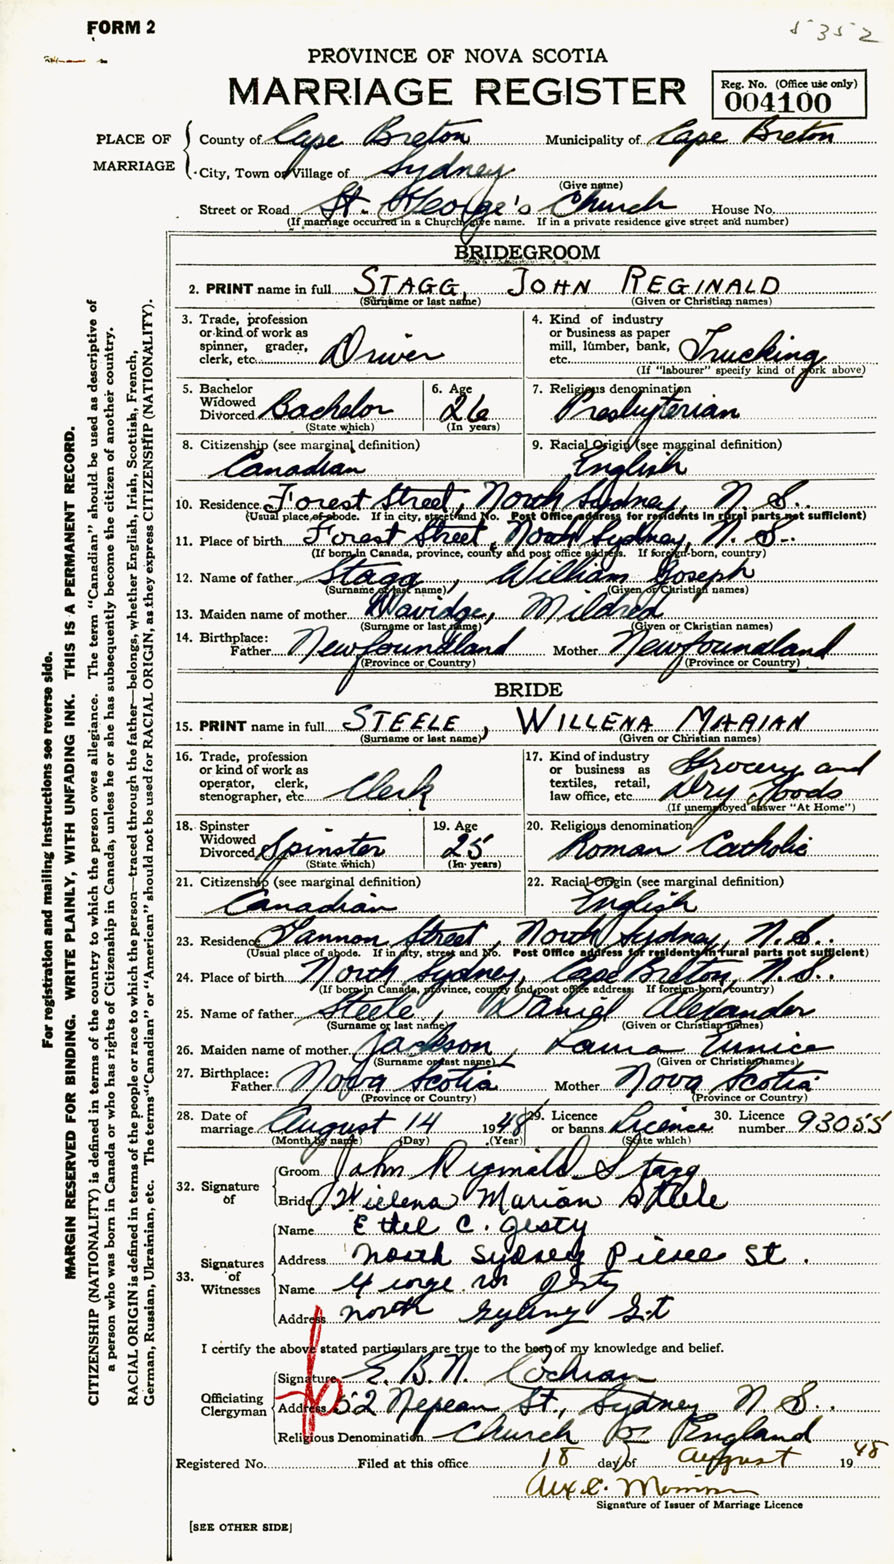 FORM 2
5352
PROVINCE OF NOVA SCOTIA
MARRIAGE REGISTER
Reg. No. (Office use only)
004100
PLACE OF MARRIAGE
County of Cape Breton Municipality of Cape Breton
City, Town or Village of Sydney
(Give name)
Street or Road St. George's Church House No.
(If marriage occurred in a Church give name. If in a private residence give street and number)
BRIDEGROOM
2. PRINT name in full STAGG, JOHN REGINALD
(Surname or last name) (Given or Christian names)
3. Trade, profession or kind of work as spinner, grader, clerk, etc. Driver
4. Kind of industry or business as paper mill, lumber, bank, etc. Trucking
(If "labourer" specify kind of work above)
5. Bachelor Widowed Divorced Bachelor
(State which)
6. Age 26
(In years)
7. Religious denomination
Presbyterian
8. Citizenship (see marginal definition)
Canadian
9. Racial Origin (see marginal definition)
English
10. Residence Forest Street, North Sydney, N. S.
(Usual place of abode. If in city, street and No. Post Office address for residents in rural parts not sufficient)
11. Place of birth Forest Street, North Sydney, N. S.
(If born in Canada, province, county and post office address. If foreign-born, country)
12. Name of father Stagg, William Joseph
(Surname or last name) (Given or Christian names)
13. Maiden name of mother Davidge, Mildred
(Surname or last name) (Given or Christian names)
14. Birthplace:
Father Newfoundland Mother Newfoundland
(Province or Country) (Province or Country)
BRIDE
15. PRINT name in full STEELE, WILLENA MARIAN
(Surname or last name) (Given or Christian names)
16. Trade, profession or kind of work as operator, clerk, stenographer, etc. Clerk
17. Kind of industry or business as textiles, retail, law office, etc. Grocery and Dry Goods
(If unemployed answer "At Home")
18. Spinster Widowed Divorced Spinster
(State which)
19. Age 25
(In years)
20. Religious denomination
Roman Catholic
21. Citizenship (see marginal definition)
Canadian
22. Racial Origin (see marginal definition)
English
23. Residence Street, North Sydney, N. S.
(Usual place of abode. If in city, street and No. Post Office address for residents in rural parts not sufficient)
24. Place of birth North Sydney, Cape Breton, N.S.
(If born in Canada, province, county and post office address. If foreign-born, country)
25. Name of father Steele, Daniel Alexander
(Surname or last name) (Given or Christian names)
26. Maiden name of mother Jackson, Laura Eunice
(Surname or last name) (Given or Christian names)
27. Birthplace:
Father Nova Scotia Mother Nova Scotia
(Province or Country) (Province or Country)
28. Date of marriage August 14 1948
(Month by name) (Day) (Year)
29. Licence or banns Licence
(State which)
30. Licence number 93055
32. Signature of
Groom John Reginald Stagg
Bride Willena Marian Steele
33. Signatures of Witnesses
Name Ethel C. Jesty
Address North Sydney Pierce St.
Name George Jesty
Address North Sydney
I certify the above stated particulars are true to the best of my knowledge and belief.
Officiating Clergyman
Signature E. B. N. Cochran
Address 52 Nepean St., Sydney N. S.
Religious Denomination Church of England
Registered No. Filed at this office 18 day of August 1948
Signature of Issuer of Marriage Licence
[SEE OTHER SIDE]
For registration and mailing instructions see reverse side.
MARGIN RESERVED FOR BINDING. WRITE PLAINLY, WITH UNFADING INK. THIS IS A PERMANENT RECORD.
CITIZENSHIP (NATIONALITY) is defined in terms of the country to which the person owes allegiance. The term "Canadian" should be used as descriptive of
a person who was born in Canada or who has rights of Citizenship in Canada, unless he or she has subsequently become the citizen of another country.
RACIAL ORIGIN is defined in terms of the people or race to which the person—traced through the father—belongs, whether English, Irish, Scottish, French,
German, Russian, Ukrainian, etc. The terms "Canadian" or "American" should not be used for RACIAL ORIGIN, as they express CITIZENSHIP (NATIONALITY).